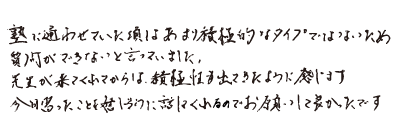 塾に通わせていた頃はあまり積極的なタイプではないため
質問ができないと言っていました。
先生が来てくれてからは、積極性も出てきたように感じます
今日習ったことを楽しそうに話してくれるのでお願いして良かったです